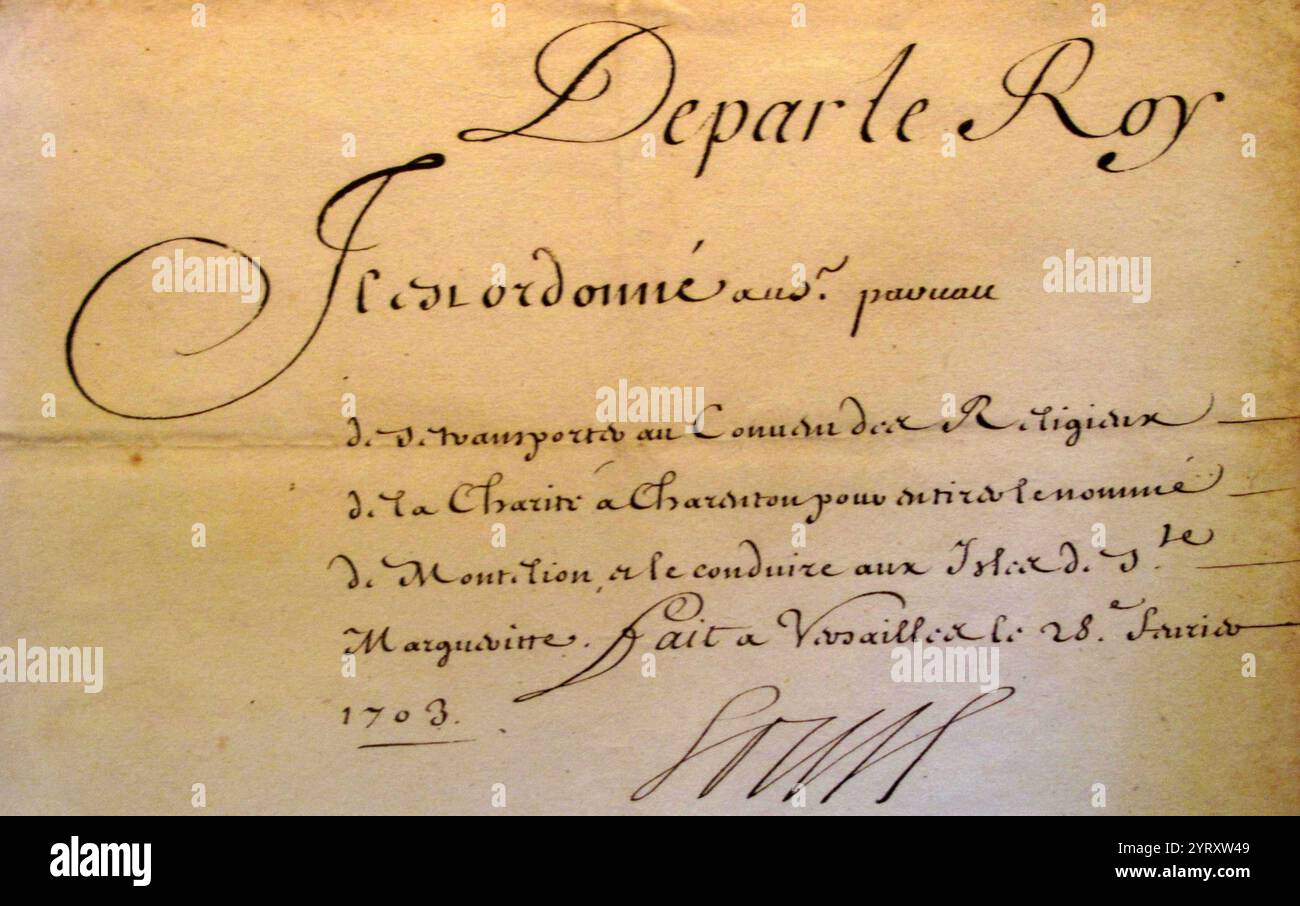 De par le Roy
Il est ordonné au Sr. pavuau
de se transporter au Convent des Religieux
de la Charité à Charenton pour en tirer le nommé
de Montelion, et le conduire aux Isles de Ste
Margueritte. fait a Versailles le 28.e fevrier
1703.
Louis
alamy
Image ID: 2SYRXW49
www.alamy.com